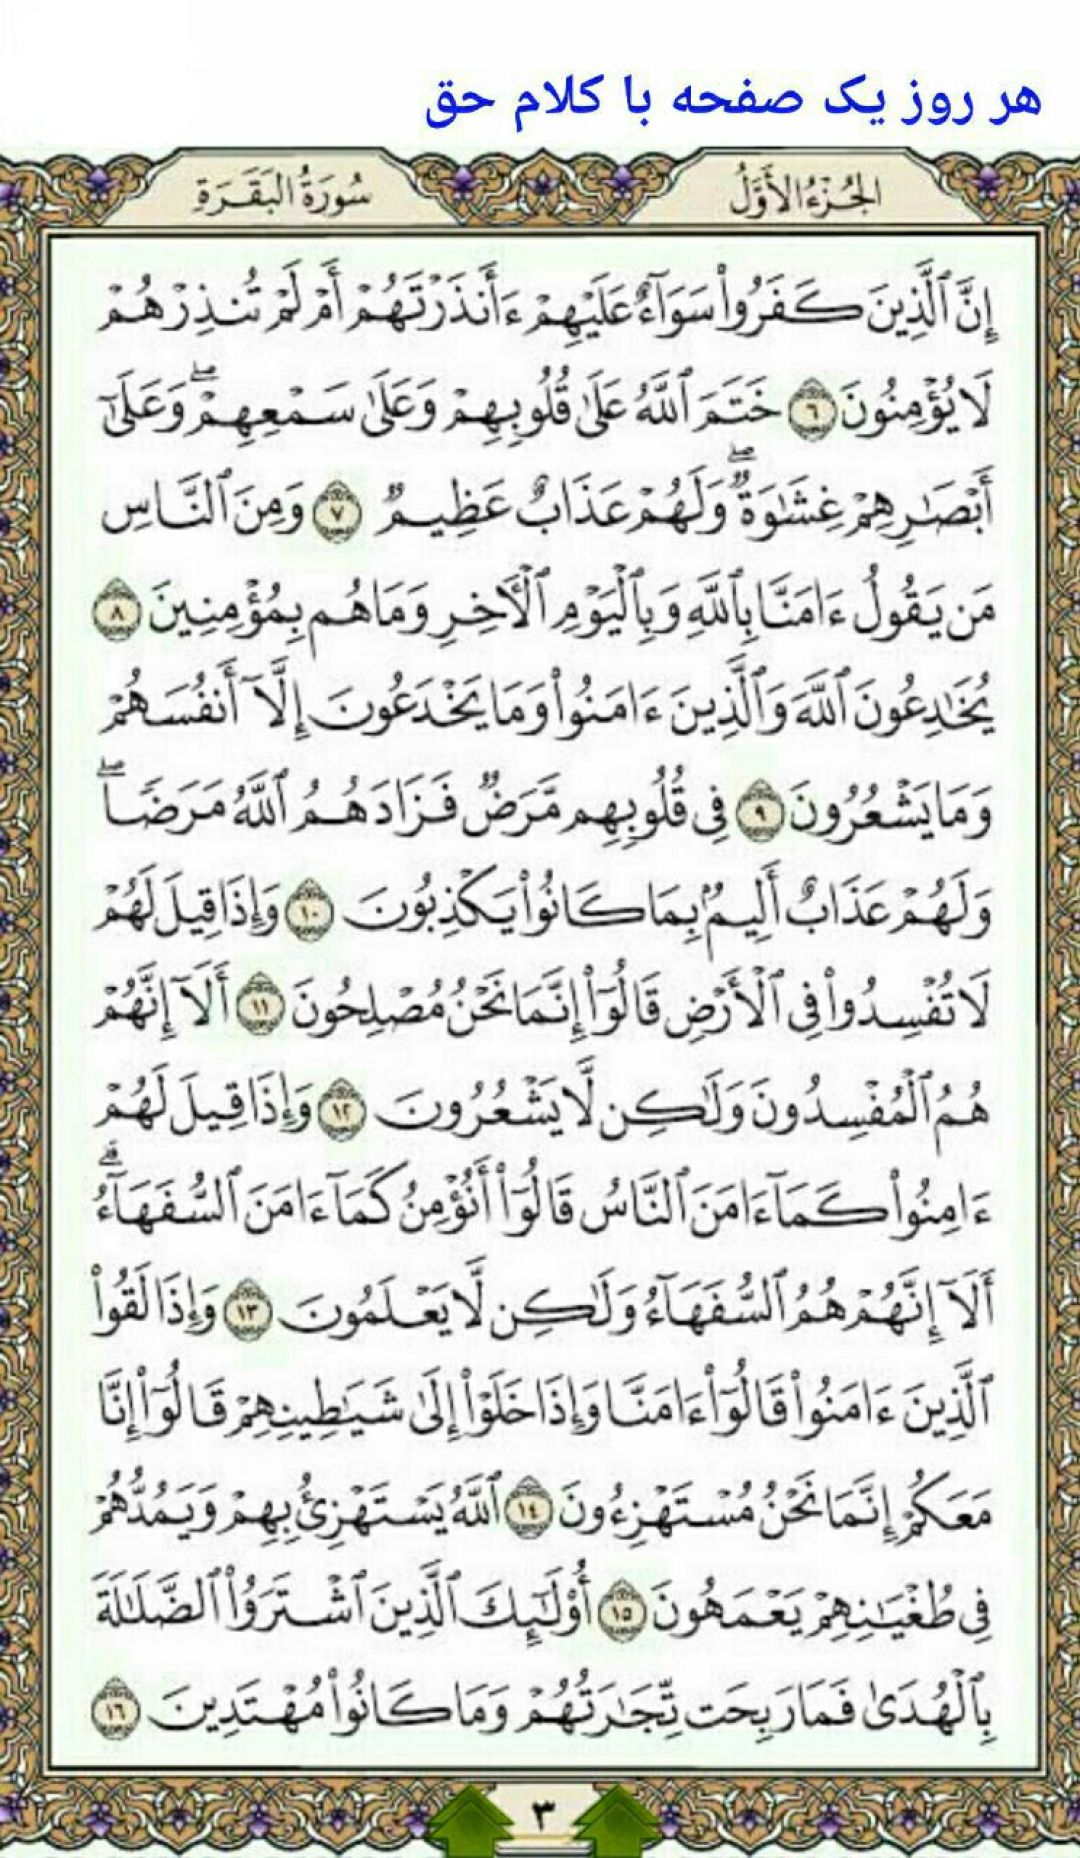 هر روز یک صفحه با کلام حق
الجُزْءُ الأَوَّلُ
سُورَةُ البَقَرَةِ
إِنَّ ٱلَّذِينَ كَفَرُوا۟ سَوَآءٌ عَلَيْهِمْ ءَأَنذَرْتَهُمْ أَمْ لَمْ تُنذِرْهُمْ
لَا يُؤْمِنُونَ ٦ خَتَمَ ٱللَّهُ عَلَىٰ قُلُوبِهِمْ وَعَلَىٰ سَمْعِهِمْ ۖ وَعَلَىٰٓ
أَبْصَـٰرِهِمْ غِشَـٰوَةٌ ۖ وَلَهُمْ عَذَابٌ عَظِيمٌ ٧ وَمِنَ ٱلنَّاسِ
مَن يَقُولُ ءَامَنَّا بِٱللَّهِ وَبِٱلْيَوْمِ ٱلْـَٔاخِرِ وَمَا هُم بِمُؤْمِنِينَ ٨
يُخَـٰدِعُونَ ٱللَّهَ وَٱلَّذِينَ ءَامَنُوا۟ وَمَا يَخْدَعُونَ إِلَّآ أَنفُسَهُمْ
وَمَا يَشْعُرُونَ ٩ فِى قُلُوبِهِم مَّرَضٌ فَزَادَهُمُ ٱللَّهُ مَرَضًا ۖ
وَلَهُمْ عَذَابٌ أَلِيمٌۢ بِمَا كَانُوا۟ يَكْذِبُونَ ١٠ وَإِذَا قِيلَ لَهُمْ
لَا تُفْسِدُوا۟ فِى ٱلْأَرْضِ قَالُوٓا۟ إِنَّمَا نَحْنُ مُصْلِحُونَ ١١ أَلَآ إِنَّهُمْ
هُمُ ٱلْمُفْسِدُونَ وَلَـٰكِن لَّا يَشْعُرُونَ ١٢ وَإِذَا قِيلَ لَهُمْ
ءَامِنُوا۟ كَمَآ ءَامَنَ ٱلنَّاسُ قَالُوٓا۟ أَنُؤْمِنُ كَمَآ ءَامَنَ ٱلسُّفَهَآءُ ۗ
أَلَآ إِنَّهُمْ هُمُ ٱلسُّفَهَآءُ وَلَـٰكِن لَّا يَعْلَمُونَ ١٣ وَإِذَا لَقُوا۟
ٱلَّذِينَ ءَامَنُوا۟ قَالُوٓا۟ ءَامَنَّا وَإِذَا خَلَوْا۟ إِلَىٰ شَيَـٰطِينِهِمْ قَالُوٓا۟ إِنَّا
مَعَكُمْ إِنَّمَا نَحْنُ مُسْتَهْزِءُونَ ١٤ ٱللَّهُ يَسْتَهْزِئُ بِهِمْ وَيَمُدُّهُمْ
فِى طُغْيَـٰنِهِمْ يَعْمَهُونَ ١٥ أُو۟لَـٰٓئِكَ ٱلَّذِينَ ٱشْتَرَوُا۟ ٱلضَّلَـٰلَةَ
بِٱلْهُدَىٰ فَمَا رَبِحَت تِّجَـٰرَتُهُمْ وَمَا كَانُوا۟ مُهْتَدِينَ ١٦
٣